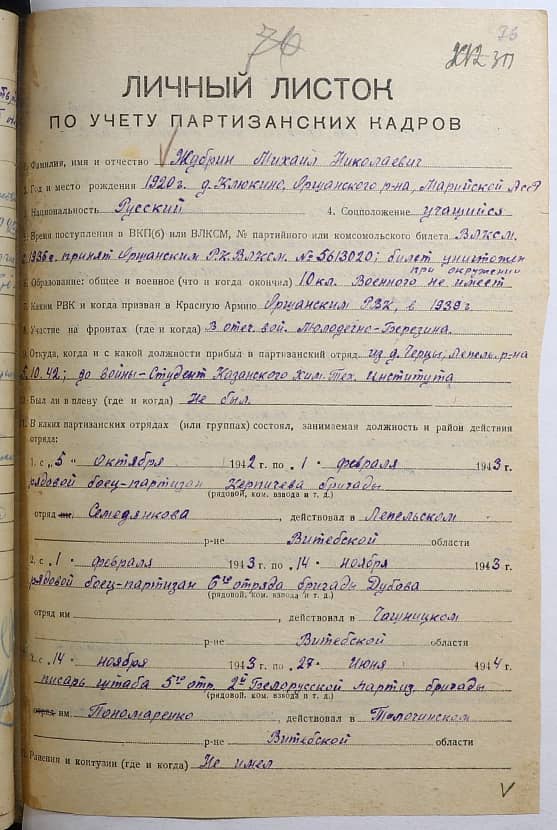 76
76
ЗП
ЛИЧНЫЙ ЛИСТОК
ПО УЧЕТУ ПАРТИЗАНСКИХ КАДРОВ
Фамилия, имя и отчество Жубрин Михаил Николаевич
2. Год и место рождения 1920 г. д. Клюкино, Оршанского р-на, Марийской АССР
Национальность Русский 4. Соцположение учащийся
Время поступления в ВКП(б) или ВЛКСМ, № партийного или комсомольского билета ВЛКСМ.
с 1936 г. принят Оршанским РК ВЛКСМ. № 5613020; билет уничтожен
при окружении
6. Образование: общее и военное (что и когда окончил) 10 кл. Военного не имеет
Каким РВК и когда призван в Красную Армию Оршанским РВК, в 1939 г.
8. Участие на фронтах (где и когда) В отеч. вой. Молодечно-Березина.
9. Откуда, когда и с какой должности прибыл в партизанский отряд из д. Черцы, Лепель. р-на
5.10.42; до войны-Студент Казанского Хим. Тех. института
10. Был ли в плену (где и когда) Не был.
11. В каких партизанских отрядах (или группах) состоял, занимаемая должность и район действия
отряда:
1. с „5" Октября 1942 г. по „1" февраля 1943 г.
рядовой боец-партизан Керпичева бригады
(рядовой, ком. взвода и т. д.)
отряд им. Семедянкова, действовал в Лепельском
р-не Витебской области
2. с „1" февраля 1943 г. по „14" ноября 1943 г.
рядовой боец-партизан 6го отряда бригады Дубова
(рядовой, ком. взвода и т. д.)
отряд им, действовал в Чашницком
р-не Витебской области
3. с „14" ноября 1943 г. по „27" Июня 1944 г.
писарь штаба 5го отр. 2й Белорусской партиз. бригады
(рядовой, ком. взвода и т. д.)
отряд им. Пономаренко, действовал в Толочинском
р-не Витебской области
Ранения и контузии (где и когда) Не имел